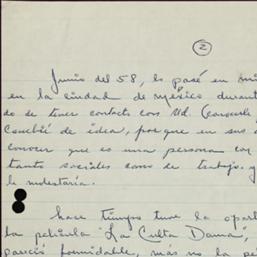 2
Junio del 58, lo pasé en
en la ciudad de México durant
do se tener contacto con Ud.
Cambié de idea, porque en sus
conocer que es una persona
tanto sociales como de trabajo. y
le molestaría.
hace tiempo tuve la oport
la película "La Culta Dama",
pareció formidable, más no la pe